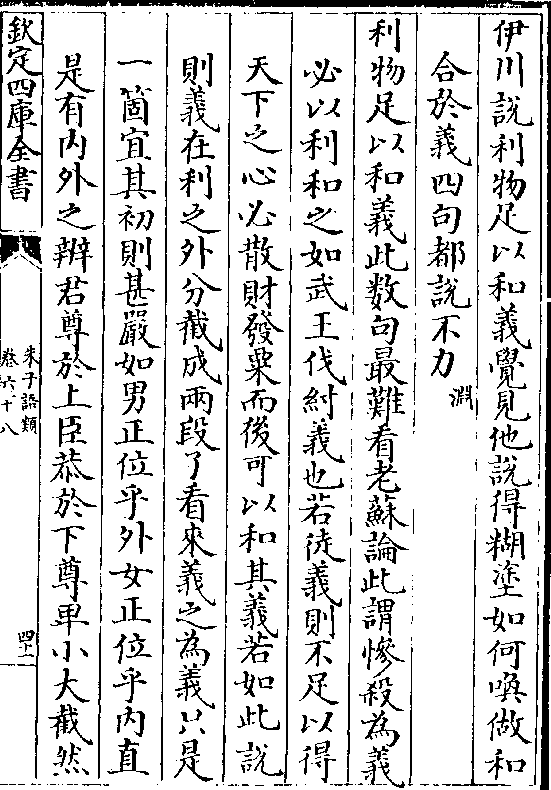 伊川說利物足以和義覺見他說得糊塗如何喚做和
合於義四句都說不力淵
利物足以和義此数句最難看老蘇論此謂慘殺為義
必以利和之如武王伐紂義也若徒義則不足以得
天下之心必散財發粟而後可以和其義若如此說
則義在利之外分截成兩段了看來義之為義只是
一箇宜其初則甚嚴如男正位乎外女正位乎內直
是有內外之辨君尊於上臣恭於下尊卑小大截然
欽定四庫全書
朱子語類
卷六十八